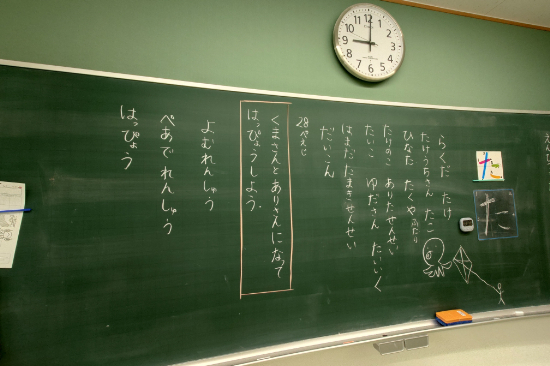 た
た
らくだ　たけ
たけうちさん　たこ
ひなた　たくや
たけのこ　ありたせんせい
たいこ　ゆださん　たいいく
はまだ　たまきせんせい
だいこん
28ぺえじ
くまさんとありさんになって
はっぴょうしよう。
よむれんしゅう
ぺあでれんしゅう
はっぴょう